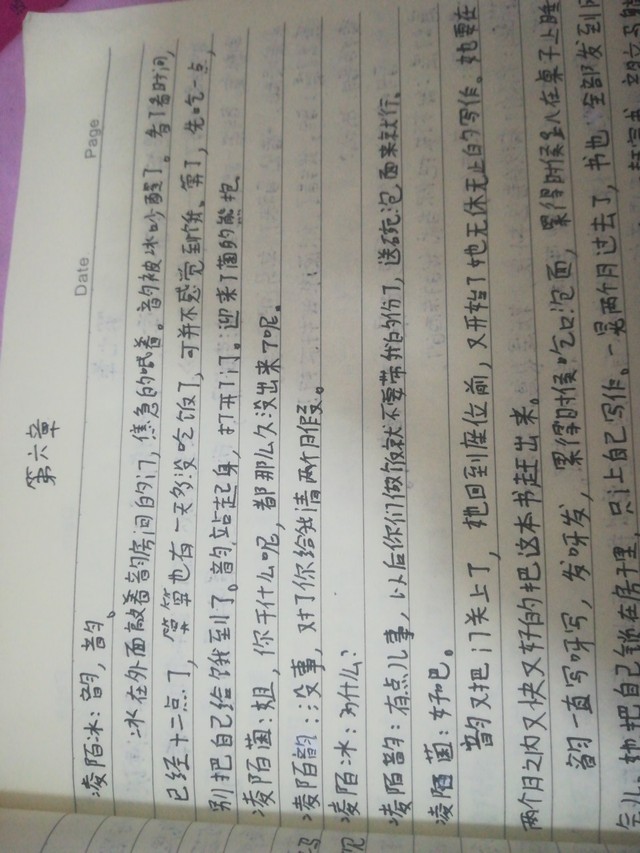 Date
Page
第六章
凌陌冰：韵，韵。
冰在外面敲着韵房间的门，焦急的喊着。韵被冰吵醒了。看了看时间，
已经十二点了，算算也有一天多没吃饭了，可并不感觉到饿、算了，先吃一点，
别把自己给饿到了。韵站起身，打开了门。迎来了菌的熊抱。
凌陌菌：姐，你干什么呢，都那么久没出来了呢。
凌陌韵：没事，对了你给我请两个月假。
凌陌冰：为什么？
凌陌韵：有点儿事，以后你们做饭就不要带我的份了，送碗泡面来就行。
凌陌菌：好吧。
韵又把门关上了，她回到座位前，又开始了她无休无止的写作。她要在
两个月之内又快又好的把这本书赶出来。
韵一直写呀写，发呀发，累得时候吃口泡面，累得时候趴在桌子上睡
会儿，她把自己锁在房子里，只让自己写作。一晃两个月过去了，书也全部发到网